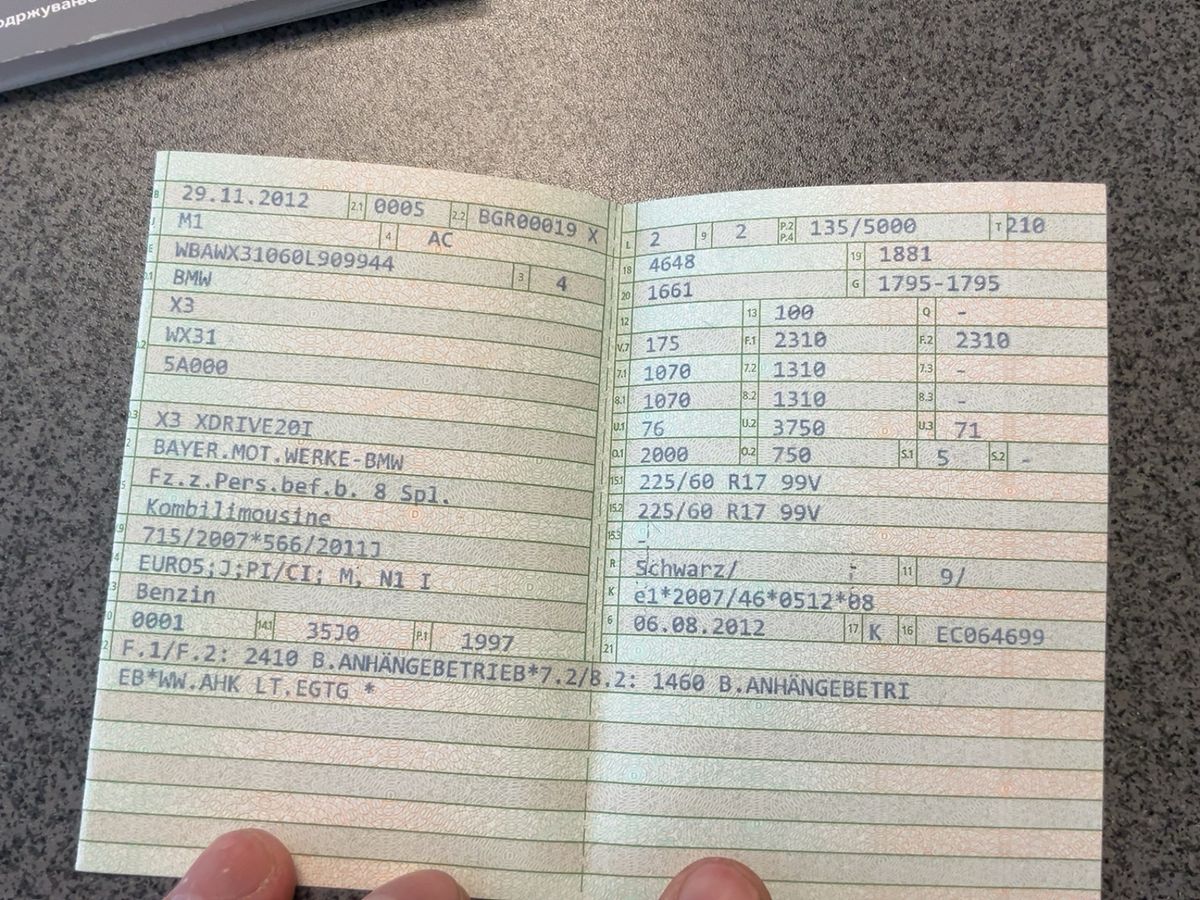 одржувањ
B 29.11.2012 2.1 0005 2.2 BGR00019 X
J M1 4 AC
E WBAWX31060L909944 3 4
D.1 BMW
X3
.2 WX31
5A000
.3 X3 XDRIVE20I
2 BAYER.MOT.WERKE-BMW
5 Fz.z.Pers.bef.b. 8 Spl.
Kombilimousine
.9 715/2007*566/2011J
4 EURO5;J;PI/CI; M, N1 I
3 Benzin
0 0001 14.1 35J0 P.1 1997
L 2 9 2 P.2 P.4 135/5000 T 210
18 4648 19 1881
20 1661 G 1795-1795
12 13 100 Q -
V.7 175 F.1 2310 F.2 2310
7.1 1070 7.2 1310 7.3 -
8.1 1070 8.2 1310 8.3 -
U.1 76 U.2 3750 U.3 71
O.1 2000 O.2 750 S.1 5 S.2 -
15.1 225/60 R17 99V
15.2 225/60 R17 99V
15.3 -
R Schwarz/ - 11 9/
K e1*2007/46*0512*08
6 06.08.2012 17 K 16 EC064699
21
2 F.1/F.2: 2410 B.ANHÄNGEBETRIEB*7.2/8.2: 1460 B.ANHÄNGEBETRI
EB*WW.AHK LT.EGTG *